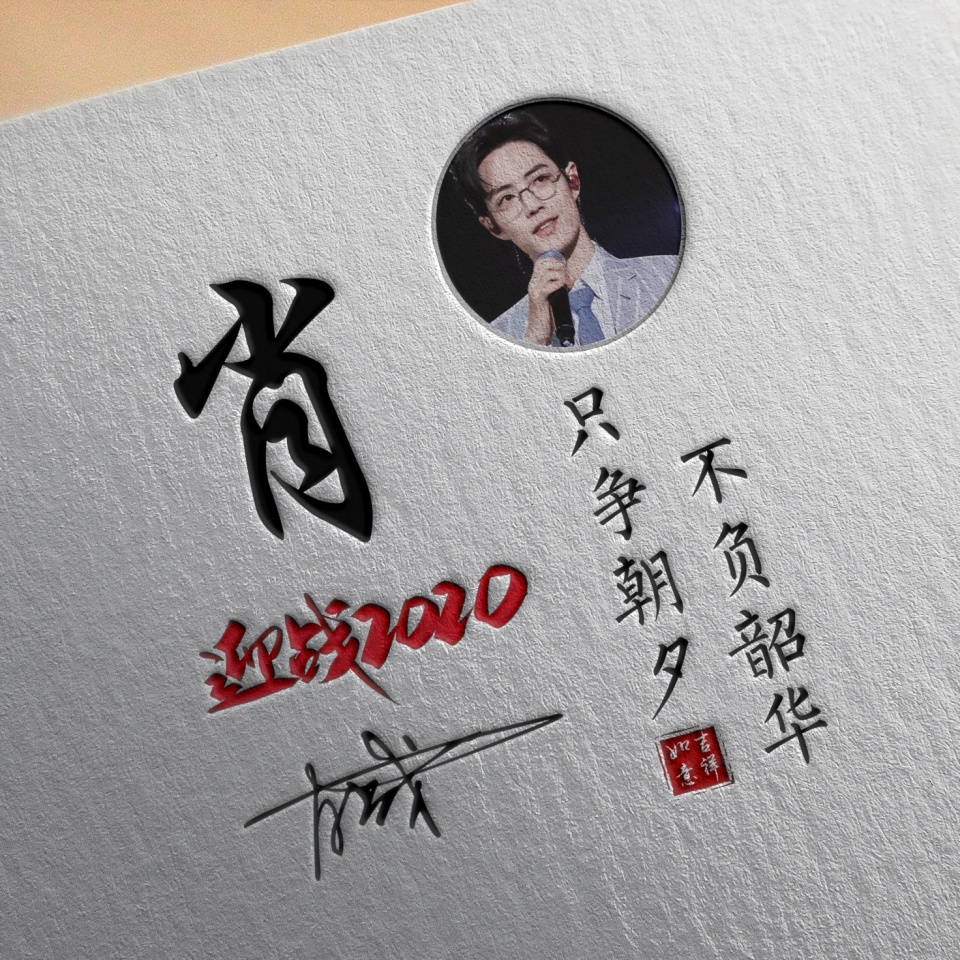 肖
迎战2020
肖战
只争朝夕
不负韶华
吉祥
如意